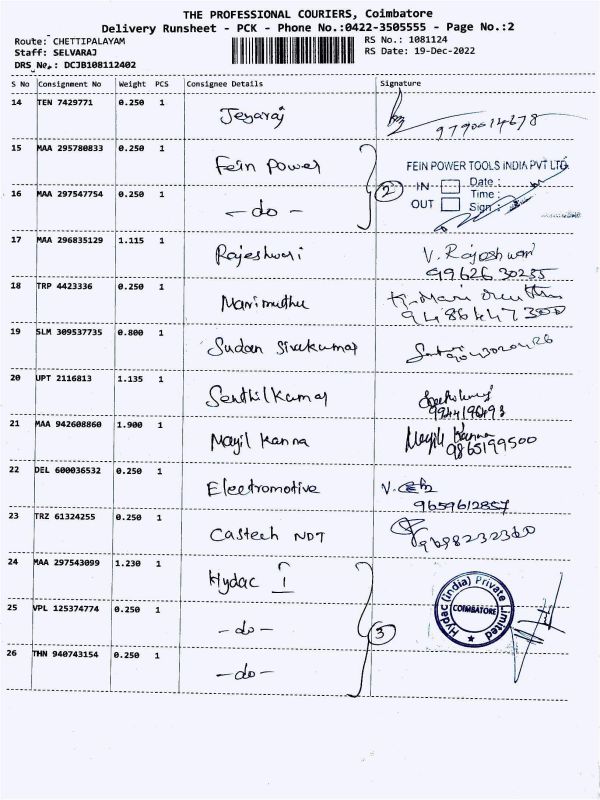 THE PROFESSIONAL COURIERS, Coimbatore
Delivery Runsheet - PCK - Phone No.:0422-3505555 - Page No.:2
Route: CHETTIPALAYAM
RS No.: 1081124
Staff: SELVARAJ
RS Date: 19-Dec-2022
DRS No.: DCJB108112402
S No Consignment No Weight PCS Consignee Details Signature
14 TEN 7429771 0.250 1 Jeyaraj
15 MAA 295780833 0.250 1 Fein Power
FEIN POWER TOOLS INDIA PVT LTD.
16 MAA 297547754 0.250 1 - do - 2
IN Date :
Time :
OUT Sign :
17 MAA 296835129 1.115 1 Rajeshwari V. Rajeshwari
99626 30255
18 TRP 4423336 0.250 1 Marimuthu
9486447300
19 SLM 309537735 0.800 1 Sudan Sivakumar
20 UPT 2116813 1.135 1 Senthil Kumar
9944196493
21 MAA 942608860 1.900 1 Mayil Kanna Mayil Kanna
9865199500
22 DEL 600036532 0.250 1 Electromotive
9659612857
23 TRZ 61324255 0.250 1 Castech NDT
9698232360
24 MAA 297543099 1.230 1 Hydac I
Hydac (India) Private Limited
COIMBATORE
25 VPL 125374774 0.250 1 - do - 3
26 THN 940743154 0.250 1 - do -